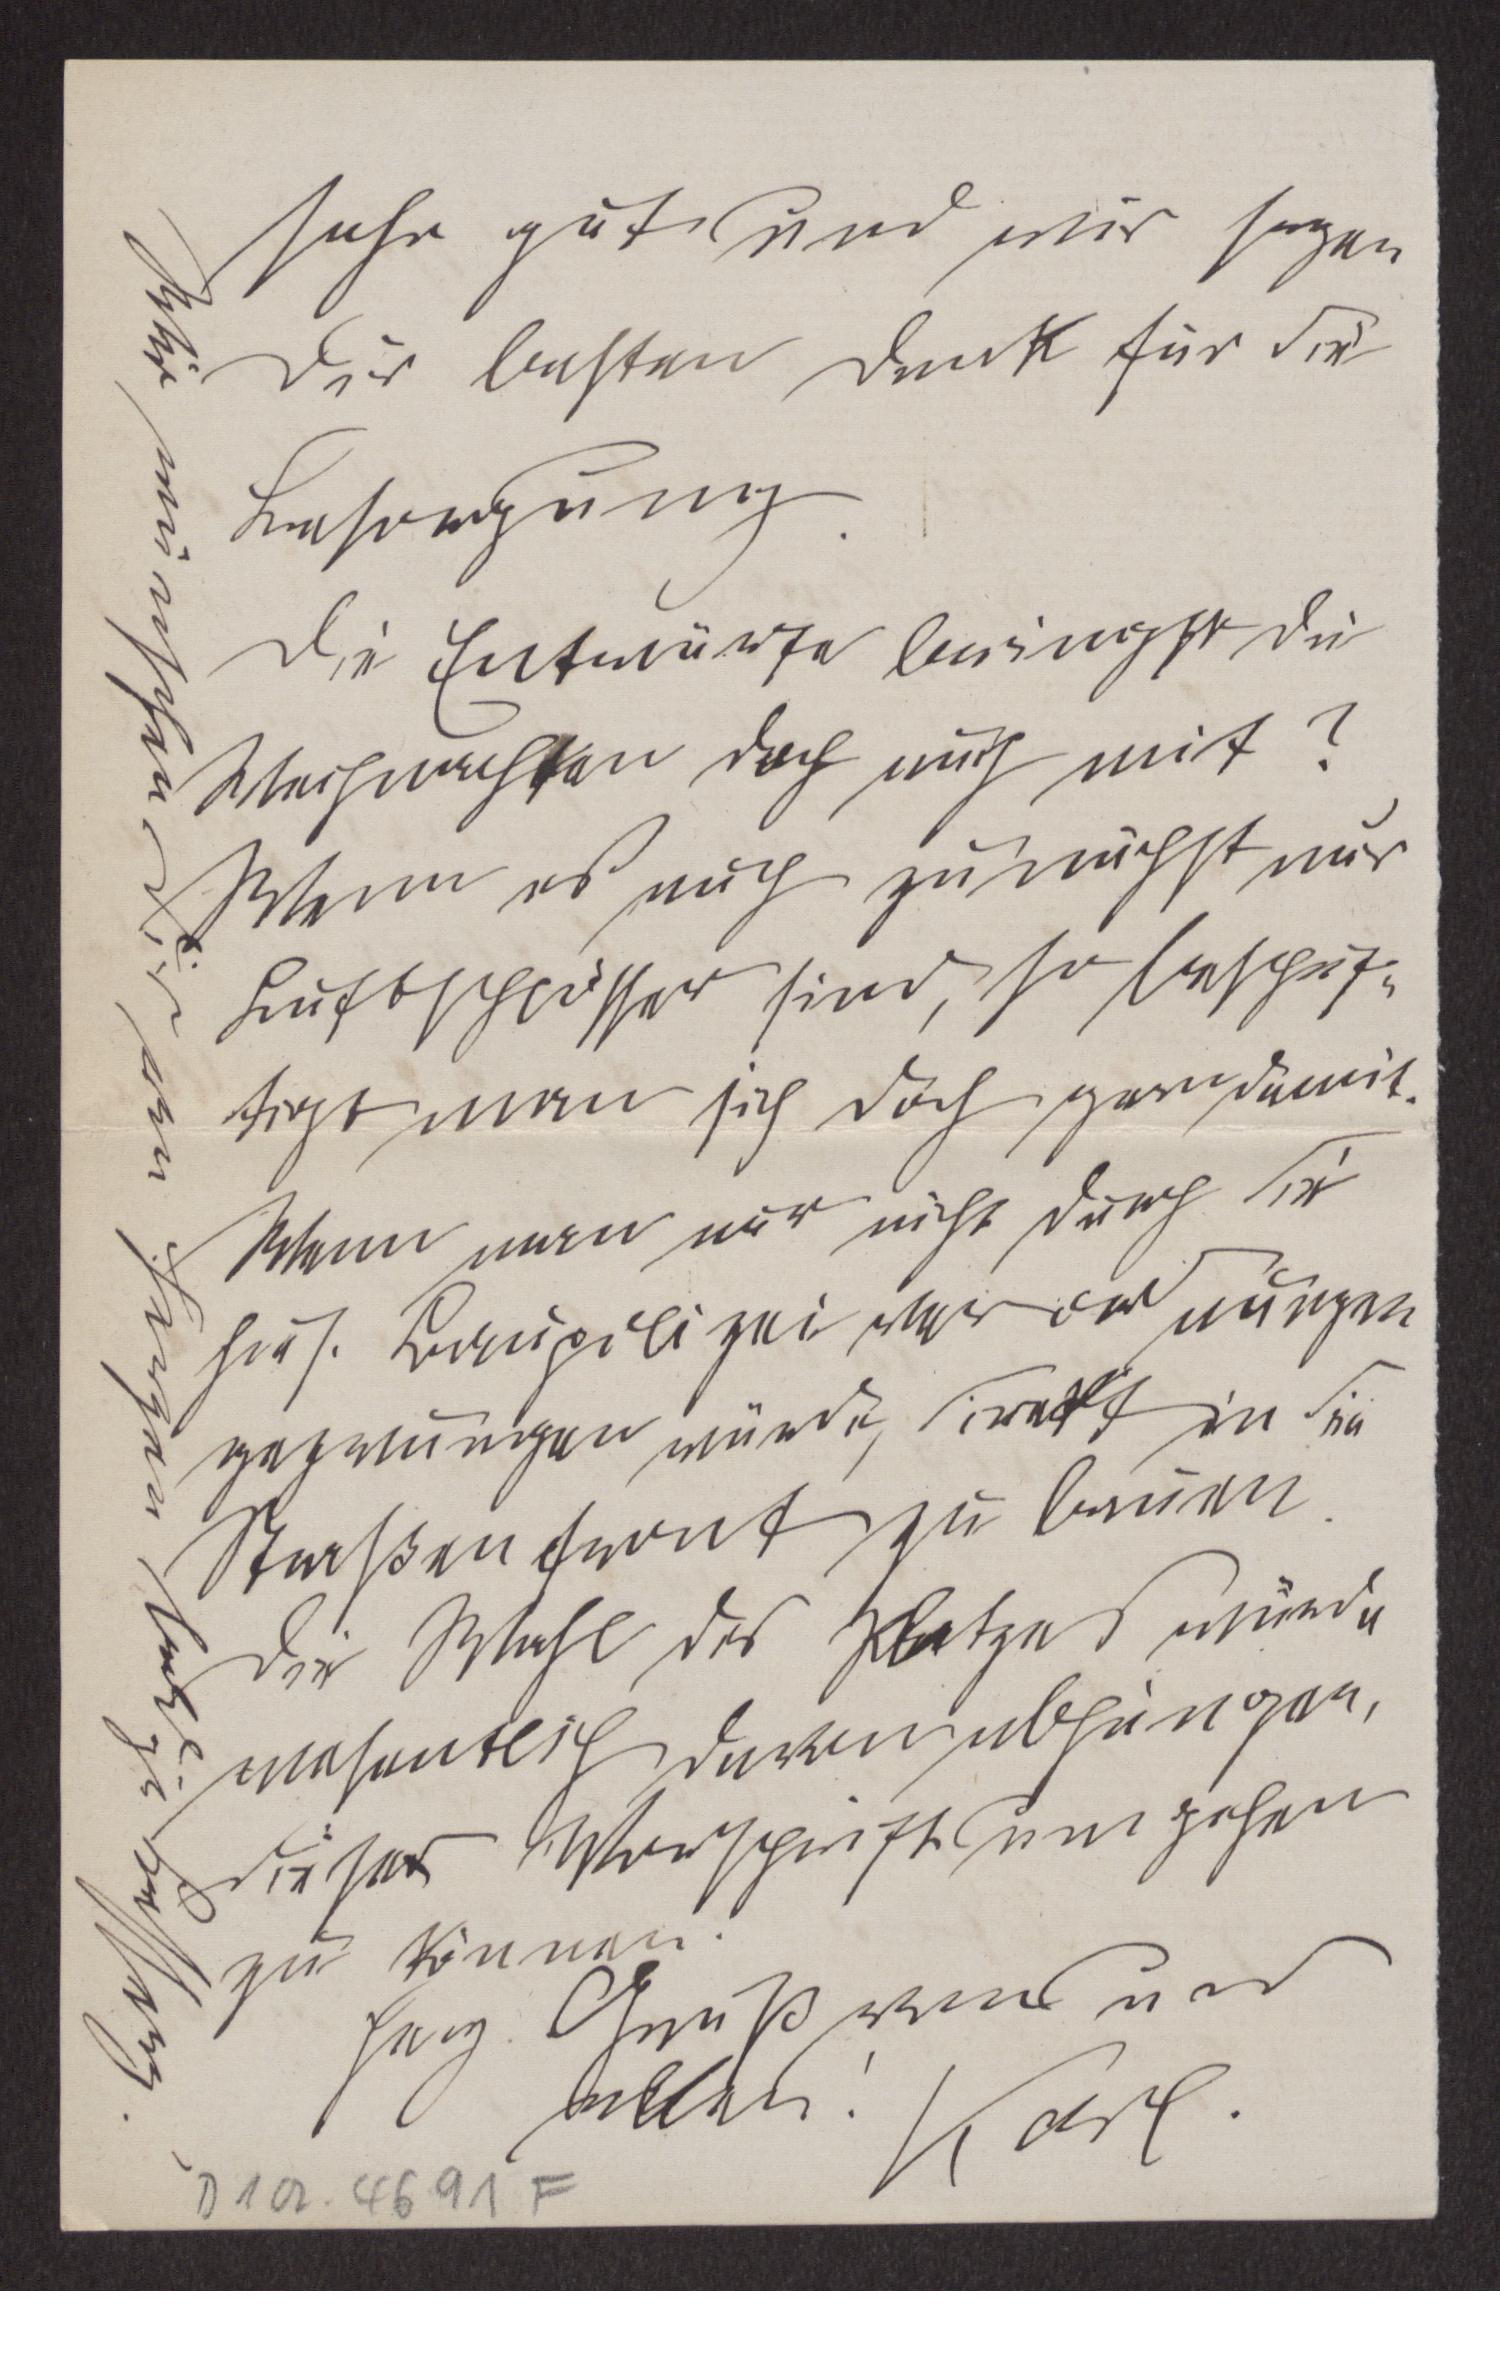 sehr gut und wir sagen
Dir besten Dank für die
Besorgung.
Die Entwürfe bringst Du
Weihnachten doch auch mit?
Wenn es auch zunächst nur
Luftschlösser sind, so beschäf-
tigt man sich doch gern damit.
Wenn man nur nicht durch die
hies. Baupolizeiverordnungen
gezwungen würde, direkt in die
Straßenfront zu bauen.
Die Wahl des Platzes würde
wesentlich davon abhängen,
dieser Vorschrift umgehen
zu können.
Herz. Gruß von und
allen! Karl.
Wir wünschen Dir von Herzen
D 1a. 4691 F